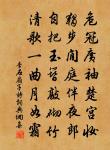 危冠廣袖楚宮妝
獨步閒庭逐夜涼
自把玉釵敲砌竹
清歌一曲月如霜